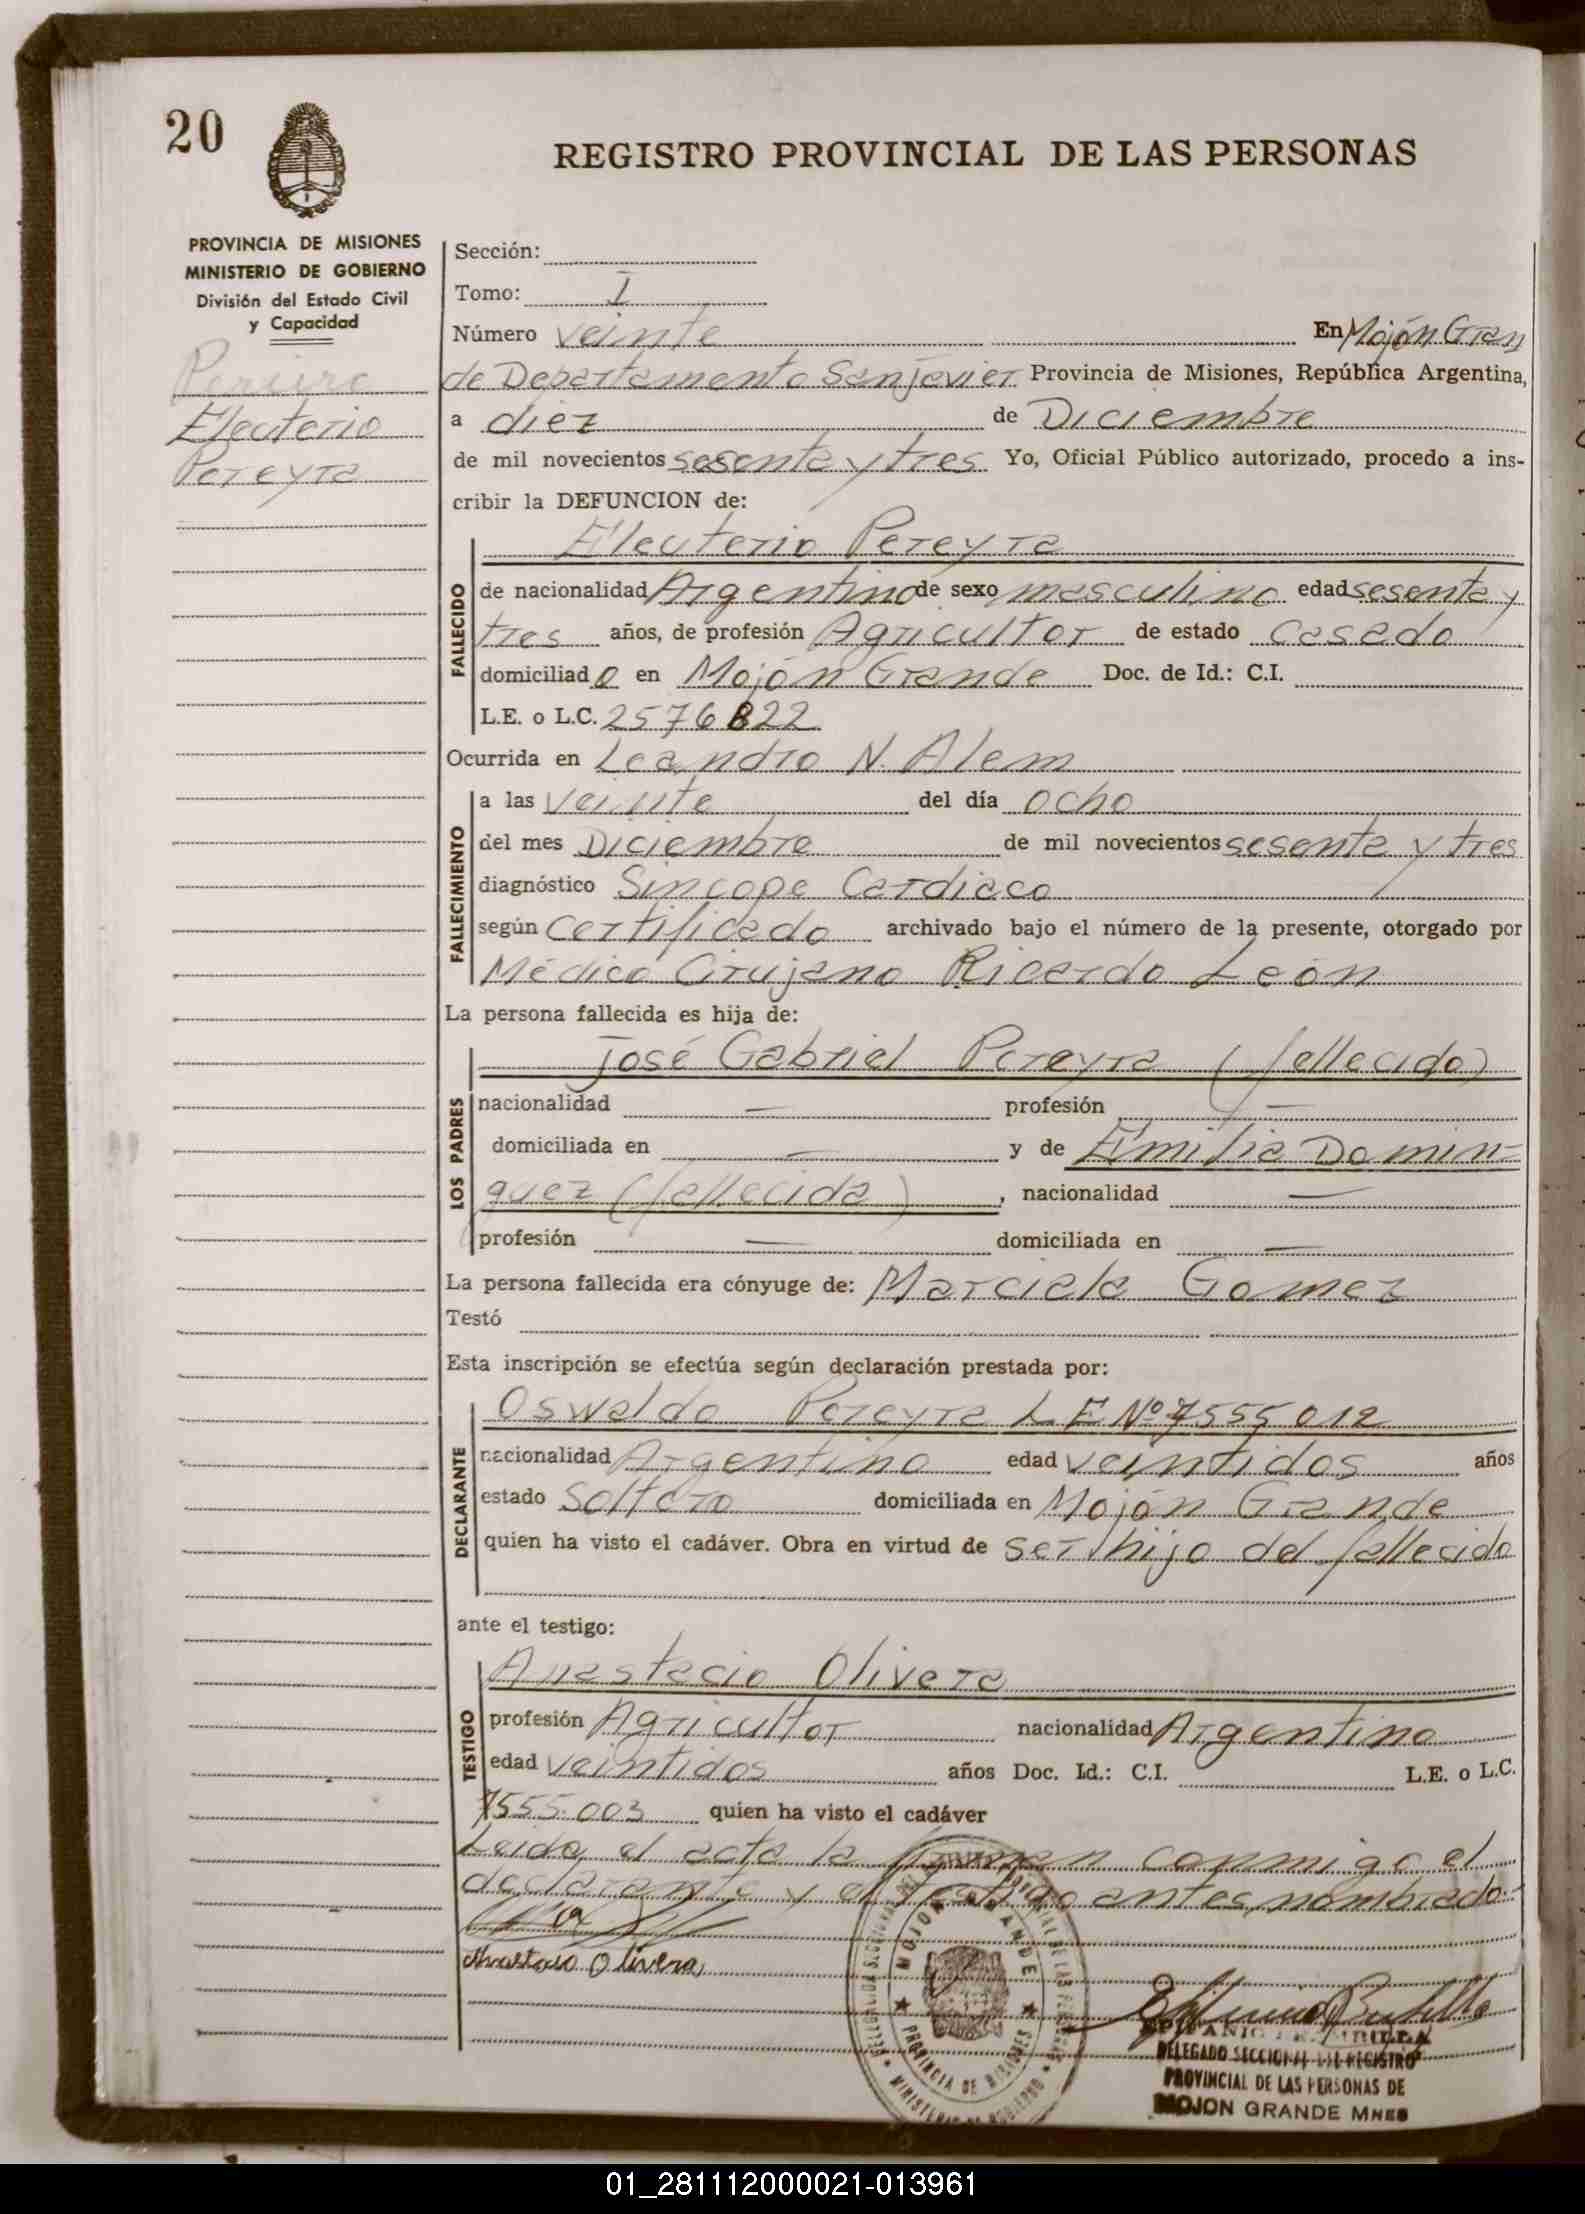 20
REGISTRO PROVINCIAL DE LAS PERSONAS
PROVINCIA DE MISIONES
MINISTERIO DE GOBIERNO
División del Estado Civil
y Capacidad
Pereira
Eleuterio
Pereyra
Sección:
Tomo: I
Número veinte En Mojón Gran
de Departamento San javier Provincia de Misiones, República Argentina,
a diez de Diciembre
de mil novecientos sesenta y tres Yo, Oficial Público autorizado, procedo a ins-
cribir la DEFUNCION de:
Eleuterio Pereyra
FALLECIDO
de nacionalidad Argentino de sexo masculino edad sesenta y
tres años, de profesión Agricultor de estado casado
domiciliado en Mojón Grande Doc. de Id.: C.I.
L.E. o L.C. 2576822
Ocurrida en Leandro N. Alem
FALLECIMIENTO
a las veinte del día ocho
del mes Diciembre de mil novecientos sesenta y tres
diagnóstico Sincope Cardiaco
según certificado archivado bajo el número de la presente, otorgado por
Médico Cirujano Ricardo León
La persona fallecida es hija de:
LOS PADRES
José Gabriel Pereyra (fallecido)
nacionalidad — profesión —
domiciliada en — y de Emilia Domin-
guez (fallecida), nacionalidad —
profesión — domiciliada en —
La persona fallecida era cónyuge de: Marciala Gomez
Testó
Esta inscripción se efectúa según declaración prestada por:
DECLARANTE
Oswaldo Pereyra L E Nº 7555012
nacionalidad Argentino edad veintidos años
estado Soltero domiciliada en Mojón Grande
quien ha visto el cadáver. Obra en virtud de ser hijo del fallecido
ante el testigo:
TESTIGO
Anastacio Olivera
profesión Agricultor nacionalidad Argentino
edad veintidos años Doc. Id.: C.I. L.E. o L.C.
7555.003 quien ha visto el cadáver
Leida el acta la firman conmigo el
declarante y el testigo antes nombrado.
Anastacio Olivera
MOJON GRANDE
PROVINCIA DE MISIONES
MINISTERIO DE GOBIERNO
DELEGADO SECCIONAL DEL REGISTRO
PROVINCIAL DE LAS PERSONAS DE
MOJON GRANDE MNES
01_281112000021-013961